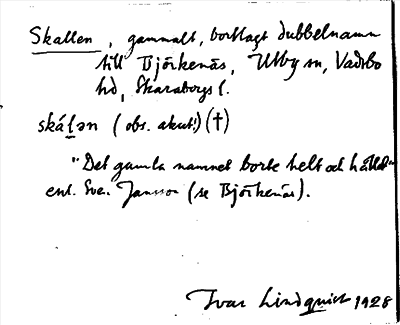 Skallen, gammalt, bortlagt dubbelnamn
till Björkenäs, Utby sn, Vadsbo
hd, Skaraborgs l.
skáłən (obs. akut!) (†)
"Det gamla namnet borte helt och hållet"
enl. Sven Jansson (se Björkenäs).
Ivar Lindquist 1928